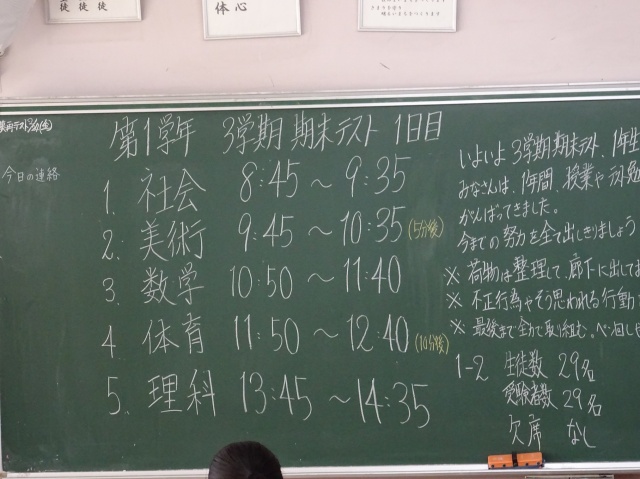 徒 徒 徒
体心
今日の連絡
第1学年 3学期 期末テスト 1日目
1. 社会 8:45 ～ 9:35
2. 美術 9:45 ～ 10:35 (5分後)
3. 数学 10:50 ～ 11:40
4 体育 11:50 ～ 12:40 (10分後)
5. 理科 13:45 ～ 14:35
いよいよ3学期期末テスト、1年生
みなさんは、1年間、授業やテスト勉
がんばってきました。
今までの努力を全て出しきりましょう
※ 荷物は整理して、廊下に出してお
※ 不正行為やそう思われる行動
※ 最後まで全力で取り組む。ペン回し
1-2 生徒数 29名
受験者数 29名
欠席 なし